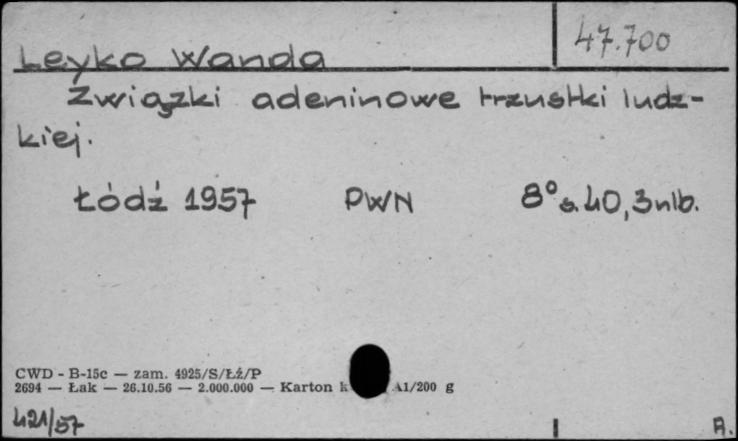 47.700
Leyko Wanda
Związki adeninowe trzustki ludz-
kiej.
Łódź 1957 PWN 8° s. 40, 3 nlb.
CWD - B-15c — zam. 4925/S/Łź/P
2694 — Łak — 26.10.56 — 2.000.000 — Karton A1/200 g
421/57 A.